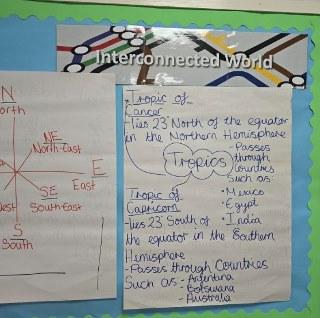 Interconnected World
N
orth
NE
North-East
E
East
SE
South-East
West
S
South
Tropic of
Cancer
-Lies 23 North of the equator
in the Northern Hemisphere
Tropics
-Passes
through
Countries
Such as:
•Mexico
•Egypt
•India
Tropic of
Capricorn
-Lies 23 South of
the equator in the Southern
Hemisphere
-Passes through Countries
Such as -Argentina
-Botswana
-Australia